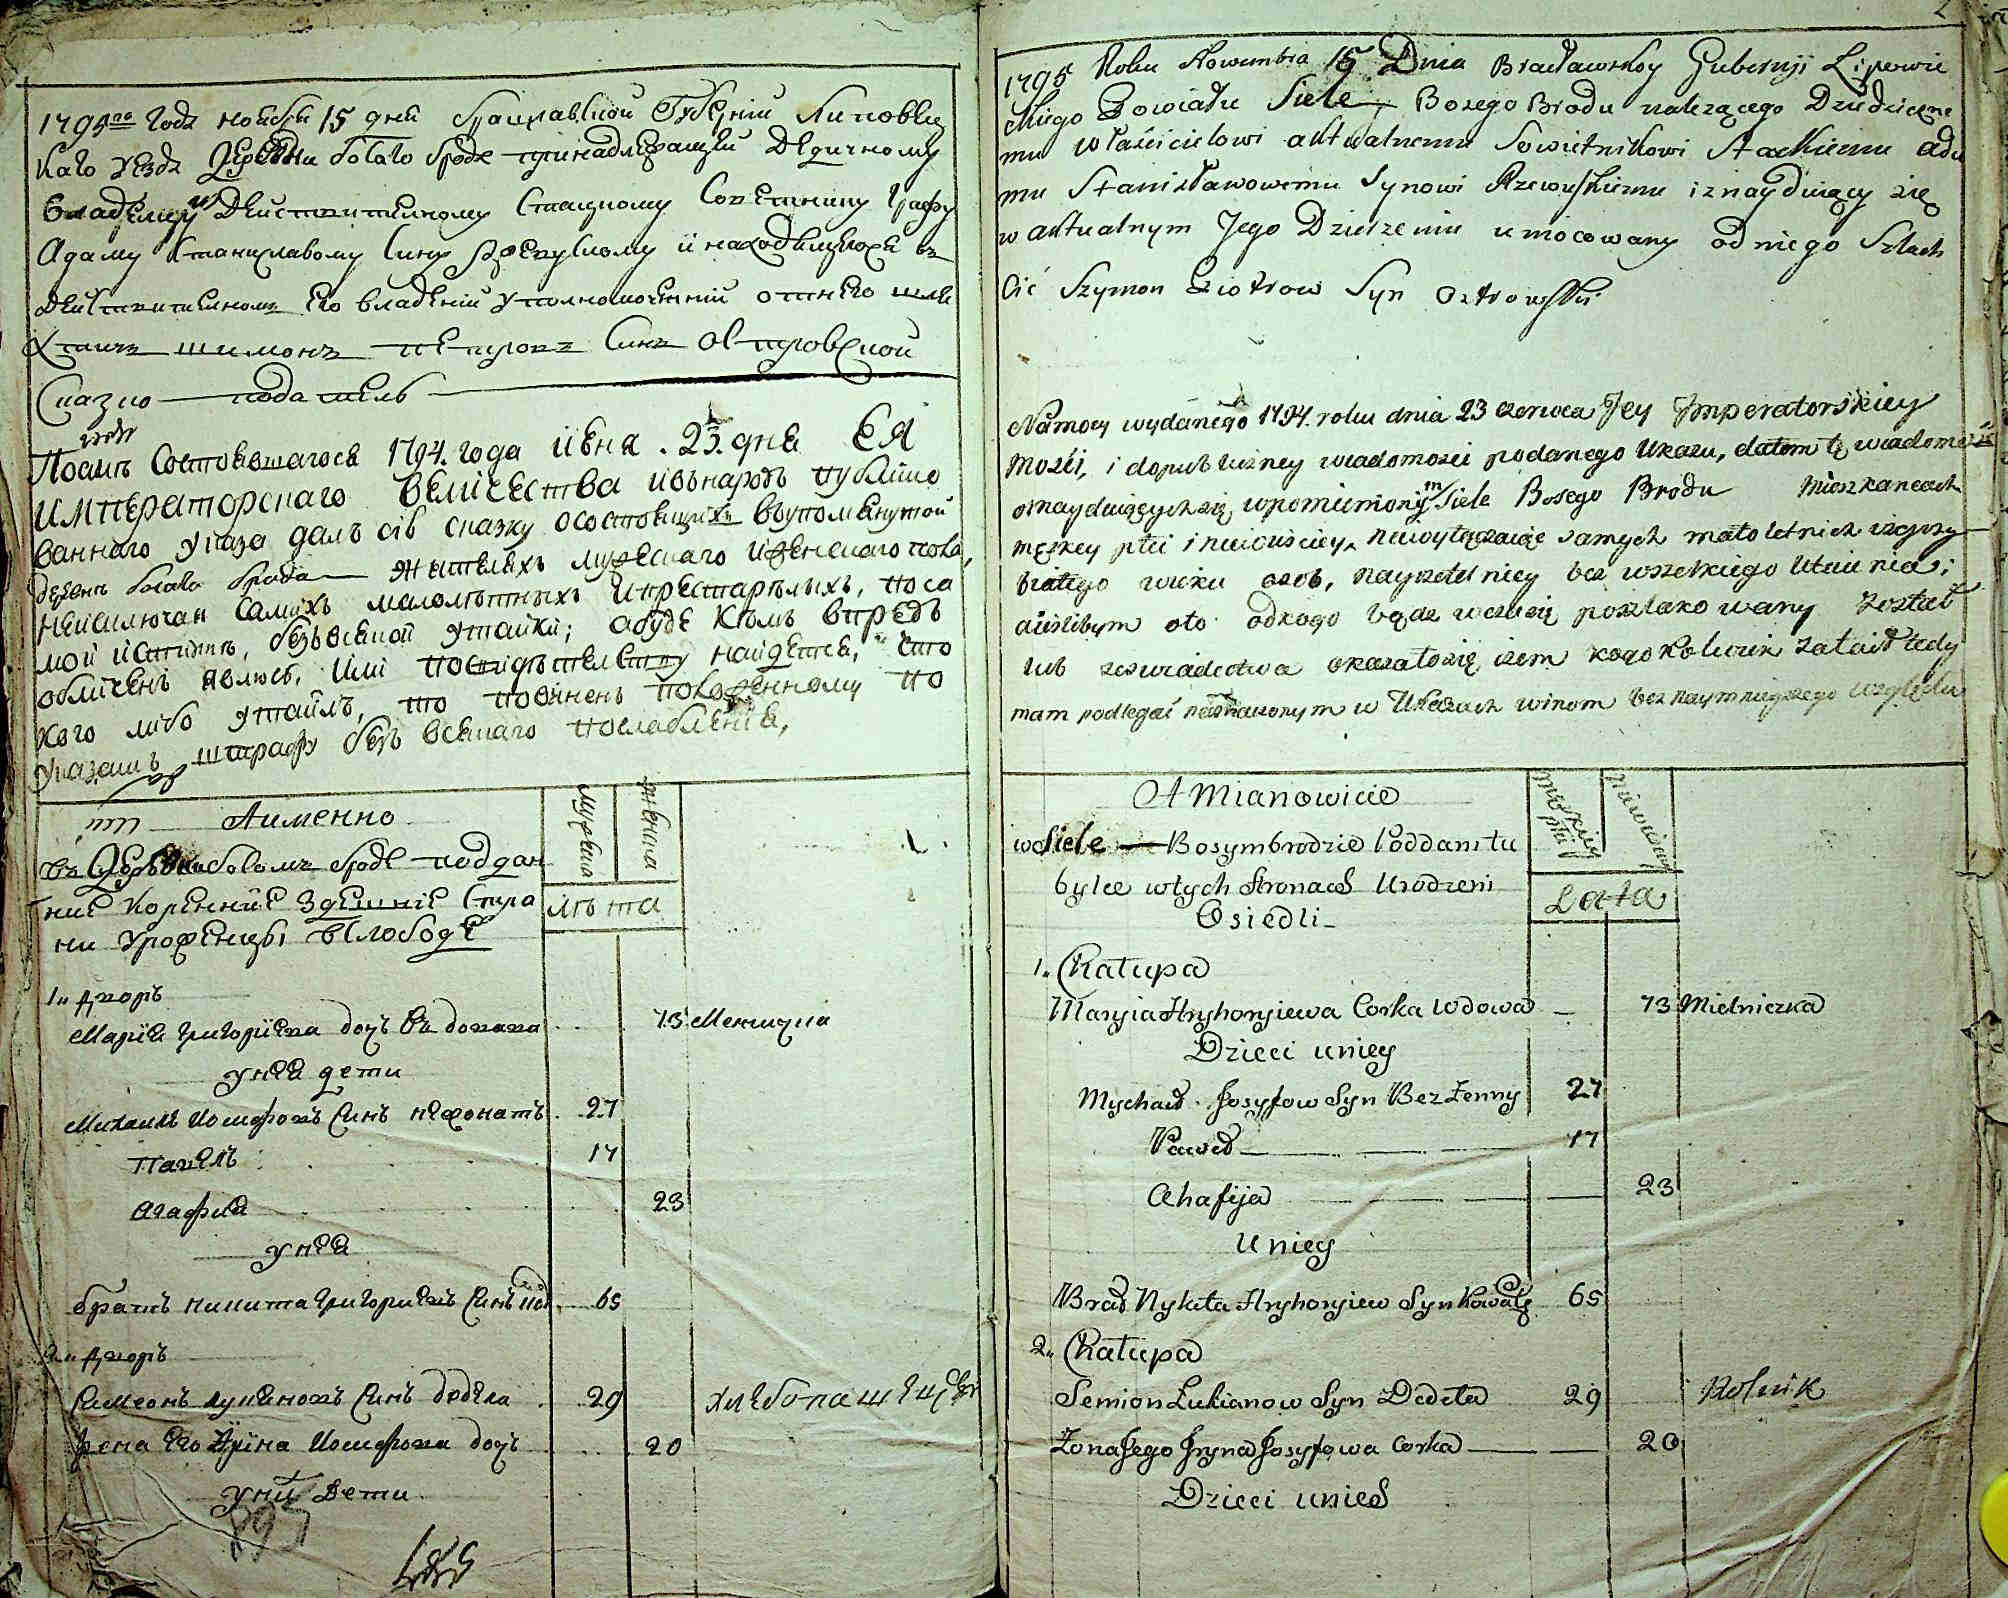 1795го Года ноября 15 дня Брацлавской Губернии Липовец
каго уезда Деревни босаго брода принадлежащей Дедичному
владельцу Действителному Статскому Советнику Графу
Адаму Станиславову Сину Ржевускому и находящегося въ
Действителномъ Его владении уполномоченний отнего шля
хтичъ шимонъ петровъ Синъ Островской
Сказпо податель
Посилѣ Состоявшагося 1794. года июня . 23. дня ЕЯ
ИМПЕРАТОРСКАГО ВЕЛИЧЕСТВА ивънародъ публико
ваннаго указа далъ сію сказку осостоящихъ въупомянутой
деревне босаго брода жителяхъ мужескаго иженскаго пола,
неисключая Самыхъ малолѣтныхъ ипрестарѣлыхъ, поса
мой истинне, безъвсякой утайки; абуде кѣмъ впредь
обличенъ явлюсь, или посвидетелству найдется, что
кого либо утаилъ, то повиненъ положенному по
указамъ штрафу безъ всякаго послабленія,
Аименно
мужеска
женска
въ Деревне босомъ броде поддан
ние коренние здешние Стра
ни уроженцы вслободе
лѣта
1„ дворъ
Мария Григориева дочъ вдова 73 Мелничка
унея дети
Михаилъ Иосифовъ Синъ неженатъ 27
Павелъ 17
Агафия 23
унея
братъ никита Григориевъ Синъ 65
2„ дворъ
Симеонъ лукяновъ Синъ дедела 29 хлебопашець
жена его Ирина Иосифова дочъ 20
уних дети
897
2
1795 Roku Nowembra 15 Dnia Bracławskoy Gubernji Lipowie
ckiego Powiadu Siele Bosego Brodu nalezącego Dziedziczne
mu własicielowi aktualnemu Sowietnikowi Stackiemu Ada
mu Stanisławowemu Synowi Rzewuskiemu i znayduiący się
w aktualnym Jego Dzierzeniu umocowany odniego Szlach
cić Szymon Piotrow Syn Ostrowski
Namocy wydanego 1794. roku dnia 23 czerwca Jey Imperatorskiey
Mości, i dopubliczney wiadomości podanego Ukazu, datom tę wiadomość
oznayduiących się wpomienionym Siele Bosego Brodu Mieszkancach
męzkey płci i niewieściey, niewyłączaiąc samych małoletnich izgrzy
białego wieku osob, nayrzetelniey bez wszelkiego Utaienia;
aieślibym oto odkogo bądz wczasie poszlakowany został
lub zeswiadectwa okazałosię, izem kogokolwiek zataił tedy
mam podlegać naznaczonym w Ukazach winom bez naymnieyszego względu
A Mianowicie
Męzkiey płci
Niewieściey
w Siele Bosymbrodzie Poddanstu
bylce wtych Stronach Urodzeni
Osiedli
Lata
1„ Chałupa
Maryia Hryhoryiewa Corka Wdowa — 73 Mielniczka
Dzieci u niey
Mychaił Josyfow Syn Bez Zenny 27
Paweł 17
Ahafija 23
U niey
Brat Nykita Hryhoryiew Syn Kowal 65
2„ Chałupa
Semion Łukianow Syn Dedela 29 Rolnik
Zona Jego Iryna Josyfowa Corka 20
Dzieci unich